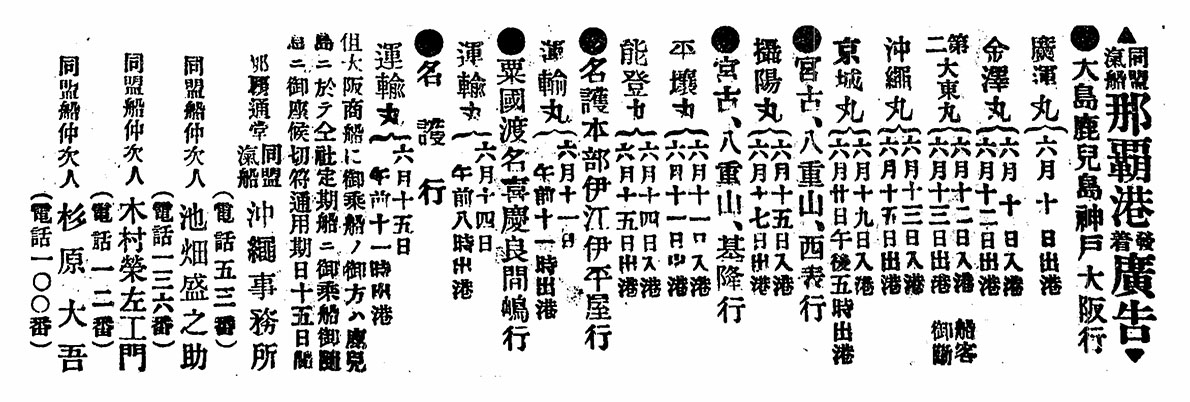 ▲同盟汽船那覇港發着廣告▼
●大島鹿兒島神戸大阪行
廣運丸 六月十日出港
金澤丸 六月十日入港
六月十二日出港
第二大東丸 六月十二日入港
六月十三日出港 船客御斷
沖繩丸 六月十三日入港
六月十五日出港
京城丸 六月十九日入港
六月廿日午後五時出港
●宮古、八重山、西表行
攝陽丸 六月十五日入港
六月十七日出港
●宮古、八重山、基隆行
平壤丸 六月十一日入港
六月十一日出港
能登丸 六月十四日入港
六月十五日出港
●名護本部伊江伊平屋行
運輸丸 六月十一日
午前十一時出港
●粟國渡名喜慶良間嶋行
運輸丸 六月十四日
午前八時出港
●名護行
運輸丸 六月十五日
午前十一時出港
但大阪商船に御乘船ノ御方ハ鹿兒
島ニ於テ仝社定期船ニ御乘船御隨
意ニ御座候切符通用期日十五日間
那覇通堂 同盟汽船 沖繩事務所
(電話五三番)
同盟船仲次人 池畑盛之助
(電話一三六番)
同盟船仲次人 木村榮左工門
(電話一二番)
同盟船仲次人 杉原大吾
(電話一〇〇番)